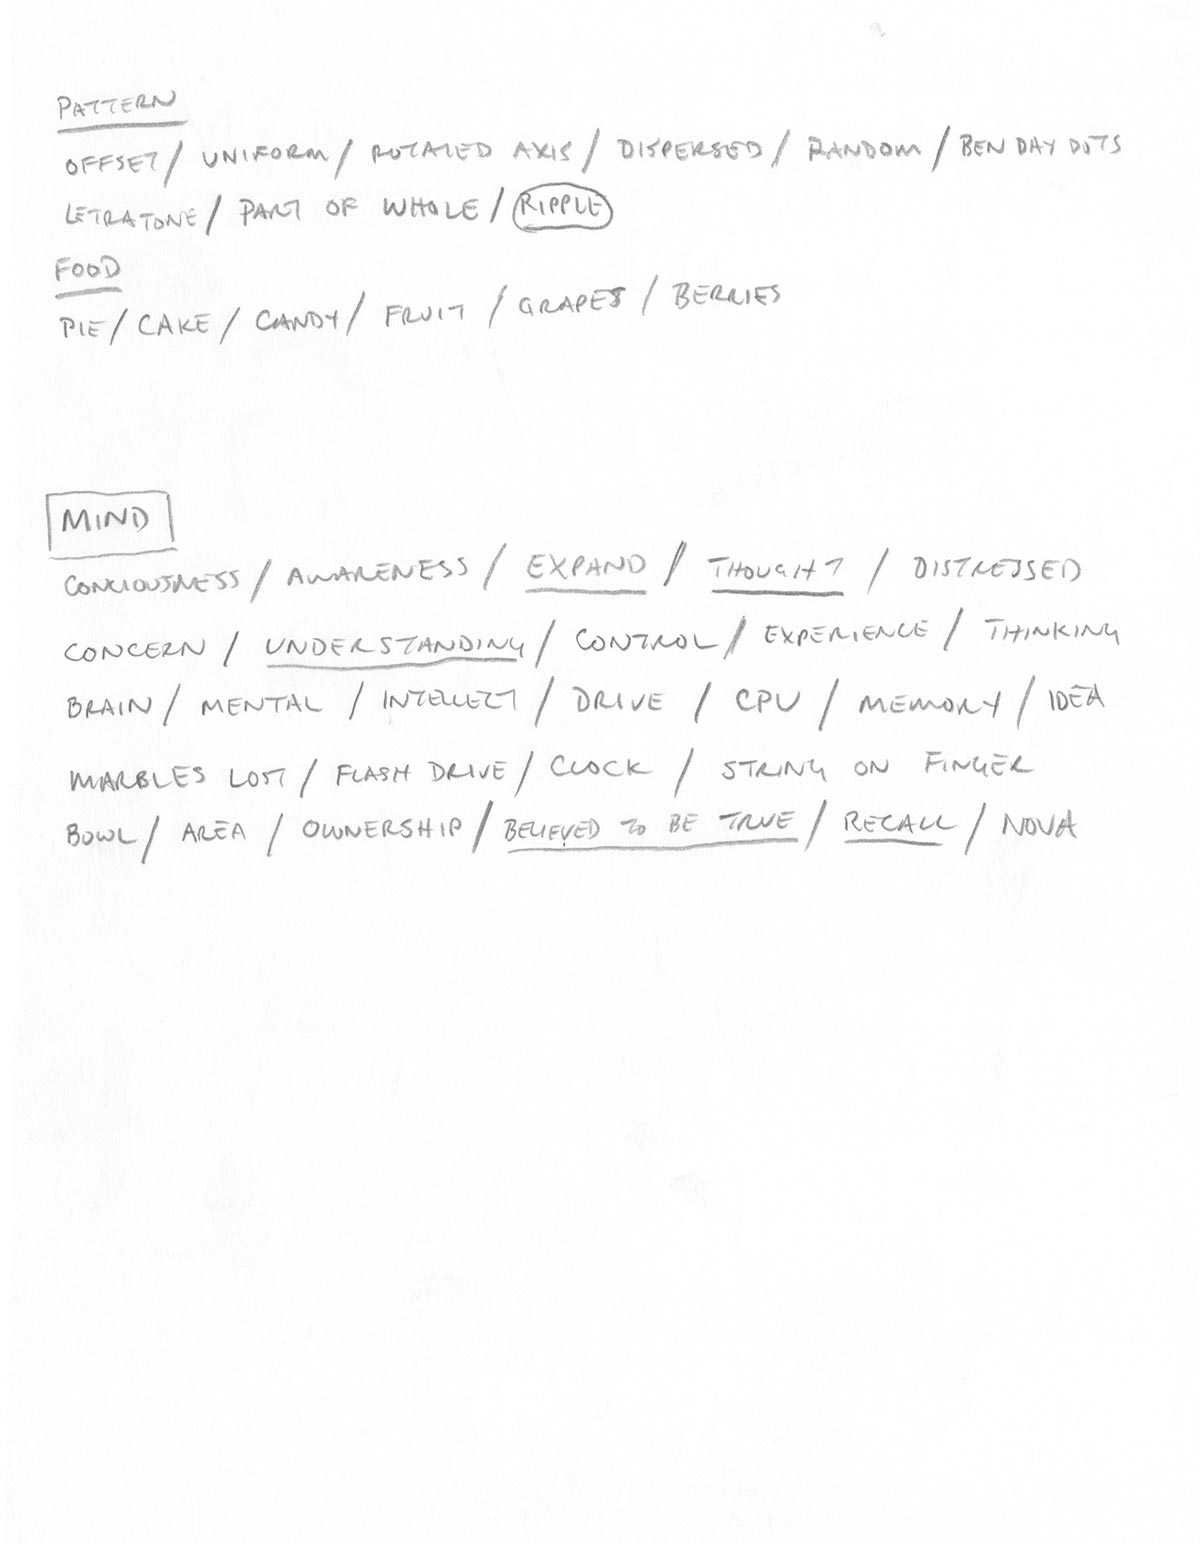 PATTERN
OFFSET / UNIFORM / ROTATED AXIS / DISPERSED / RANDOM / BEN DAY DOTS
LETRATONE / PART OF WHOLE / RIPPLE
FOOD
PIE / CAKE / CANDY / FRUIT / GRAPES / BERRIES
MIND
CONCIOUSNESS / AWARENESS / EXPAND / THOUGHT / DISTRESSED
CONCERN / UNDERSTANDING / CONTROL / EXPERIENCE / THINKING
BRAIN / MENTAL / INTELLECT / DRIVE / CPU / MEMORY / IDEA
MARBLES LOST / FLASH DRIVE / CLOCK / STRING ON FINGER
BOWL / AREA / OWNERSHIP / BELIEVED TO BE TRUE / RECALL / NOVA